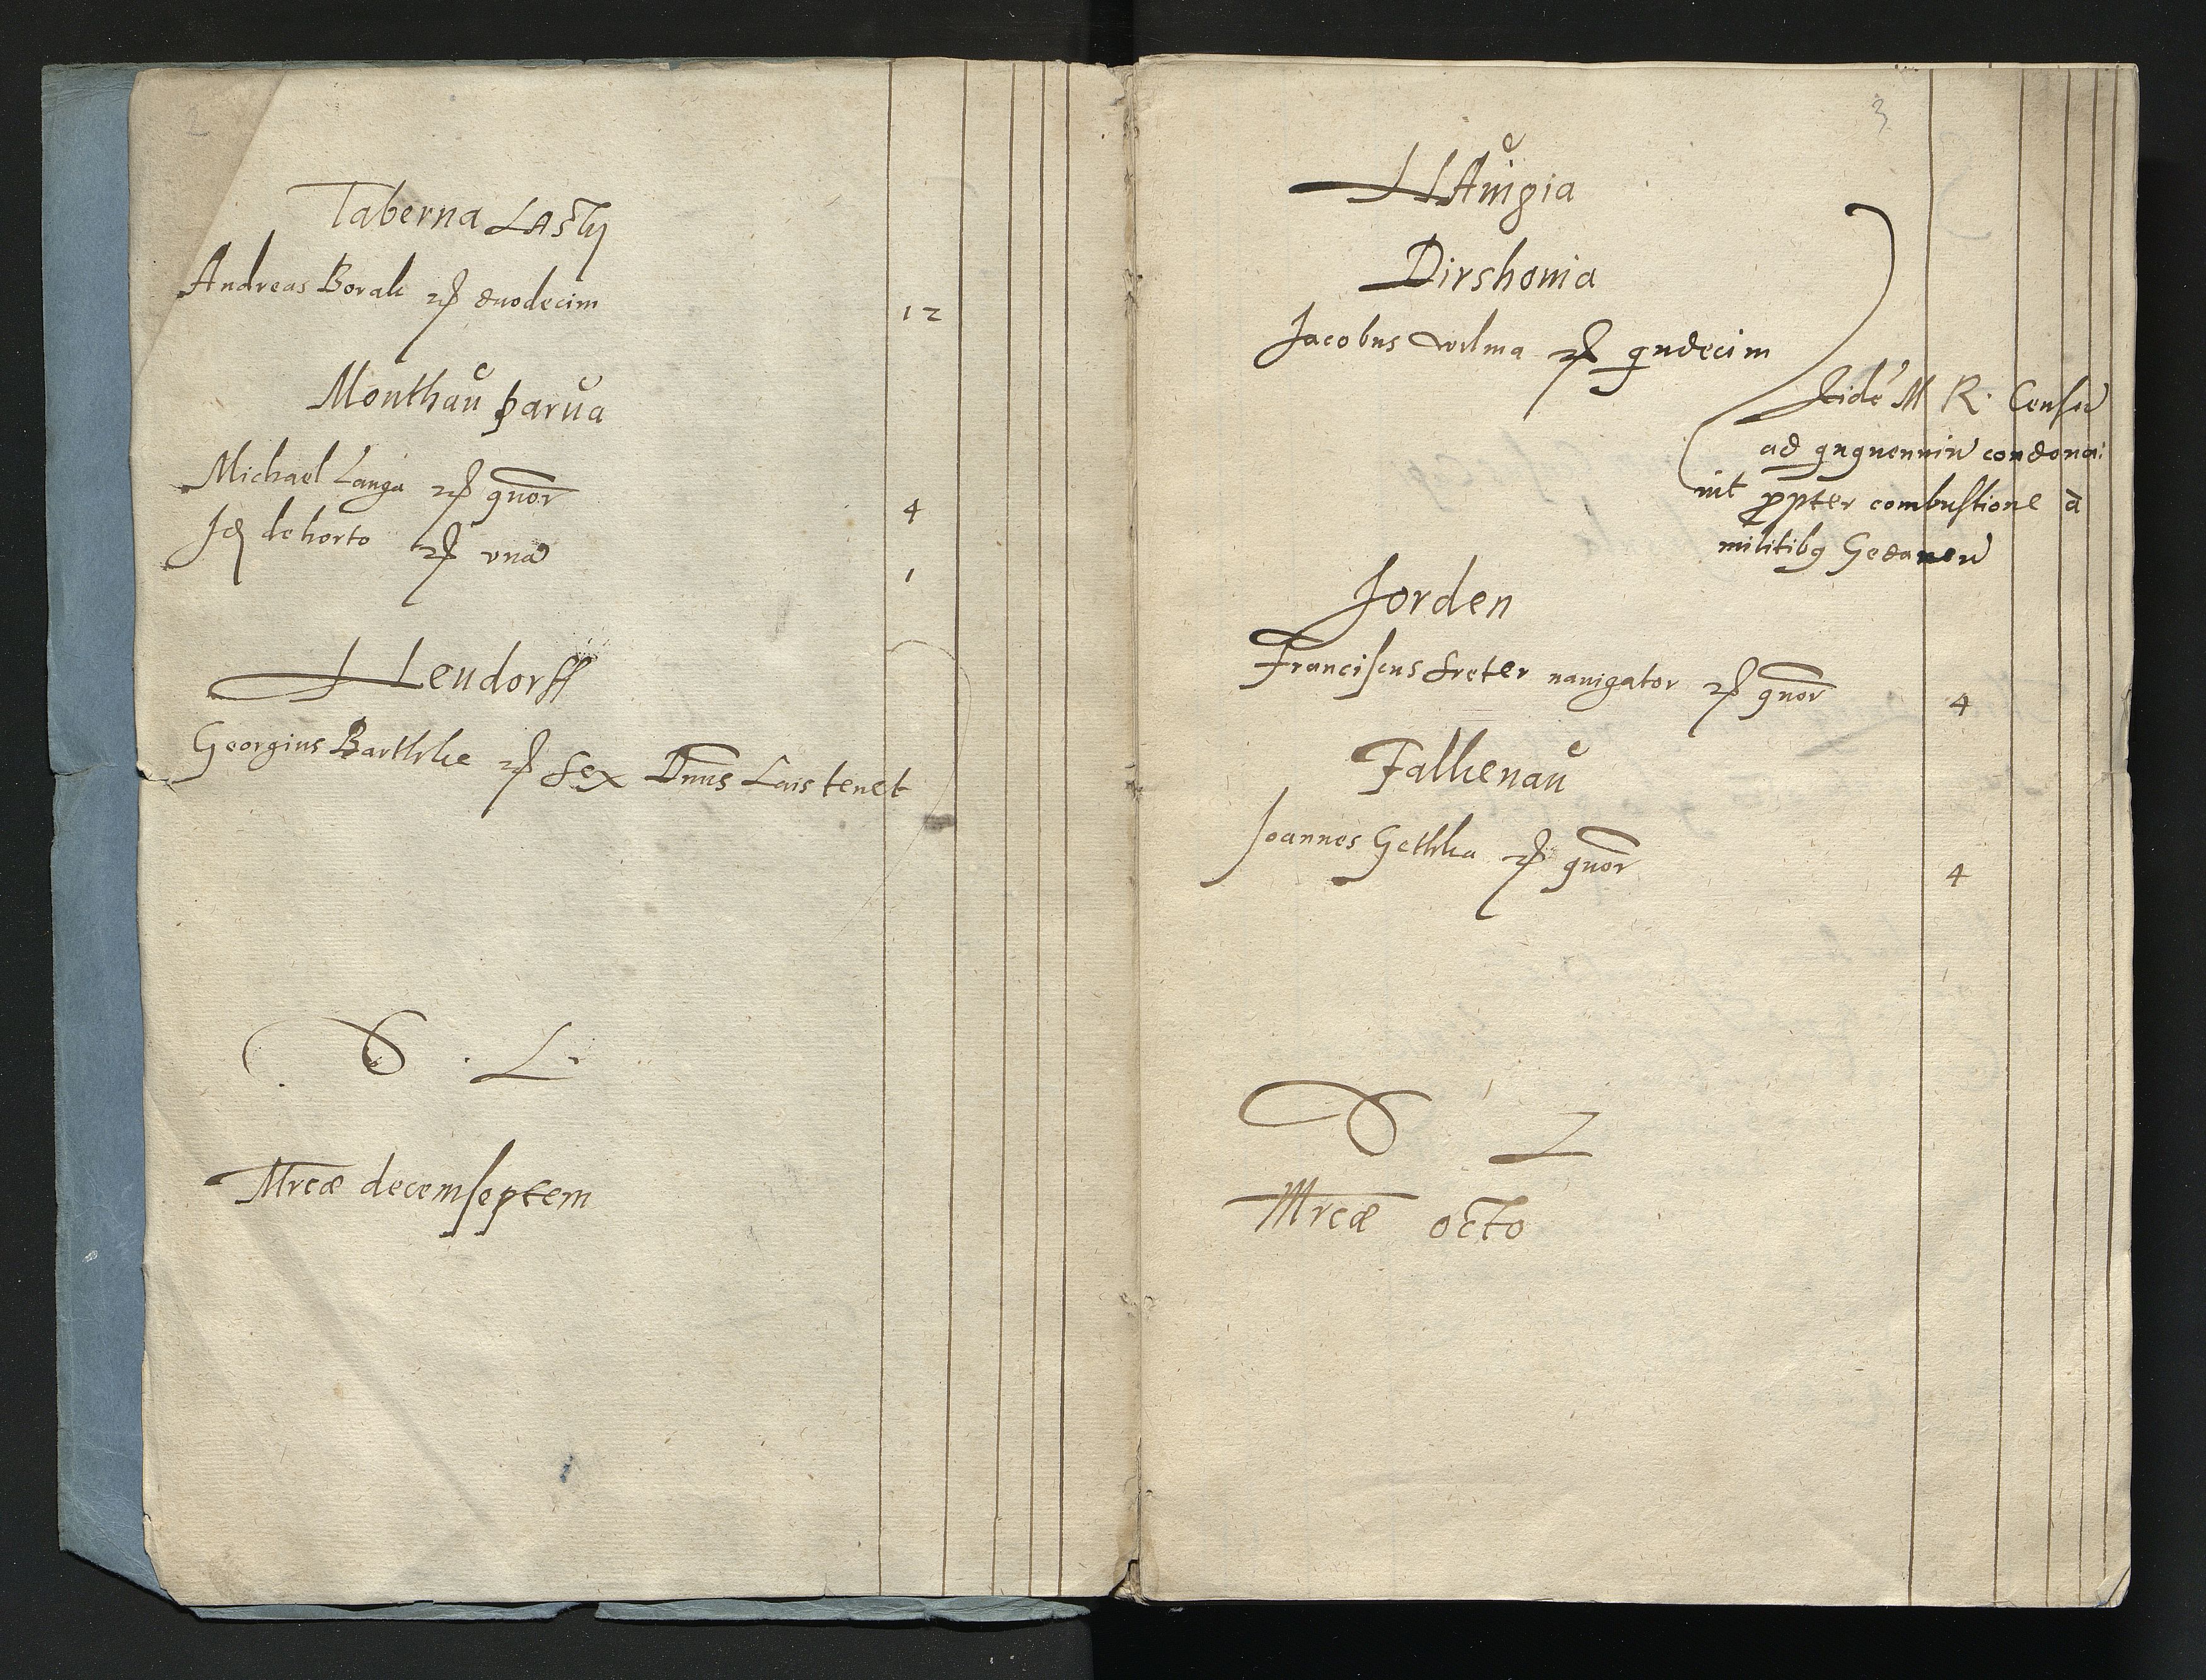 2
Taberna Lasty
Andreas Borak mrc duodecim 12
Monthau parua
Michael Langa mrc quor 4
Id de horto mrc vna 1
Leudorff
Georgius Barthke mrc sex Dnus Lais tenet
S. L.
Mrcæ decemseptem
3
Dirshouia
Jacobus wilma mrc qndecim
M R. Censu
ad qnquenniu condona:
uit propter combustione a
militibq Gedanen
Jorden
Franciscus Sreter nauigator mrc quor 4
Falkenau
Joannes Gethka mrc quor 4
S L
Mrcæ octo